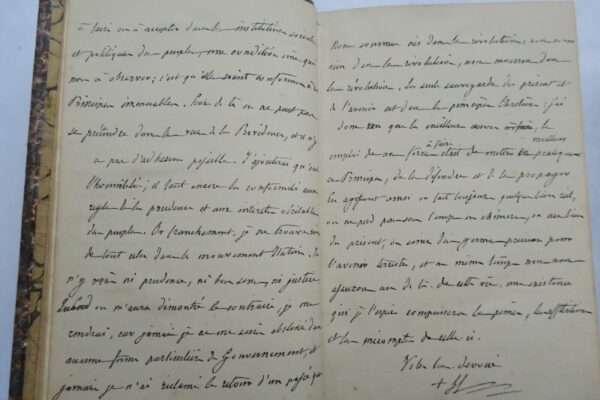 à faire ou à accepter dans les institutions sociales
et politiques du peuple, une condition sine qua
non à observer; c'est qu'elles soient conformes à
Principes immuables, hors de là on ne peut pas
se prétendre dans la vue de la Providence, et il n'y
a pas d'adhésion possible. J'ajouterai qu'
l'honnêteté; il faut encore la conformité aux
règles de la prudence et aux intérêts véritables
du peuple. Or franchement, je ne trouve rien
de tout cela dans le mouvement Italien, je
n'y vois ni prudence, ni bon sens, ni justice
Quand on m'aura démontré le contraire, je me
rendrai, car jamais je ne me suis dans
aucune forme particulière de Gouvernement, et
jamais je n'ai réclamé le retour d'un passé qui
Nous sommes nés dans la révolution, nous
dans la révolution, nous mourrons dans
la révolution, la seule sauvegarde du présent et
de l'avenir est dans les principes Chrétiens: j'ai
donc cru que la meilleure œuvre, le meilleur
emploi de mes forces à faire était de mettre en pratique
ces Principes, de les défendre et de les propager.
En agissant ainsi on fait toujours quelque bien réel,
on ne perd pas son temps en chimères, on
du présent, on sème des germes précieux pour
l'avenir terrestre, et en même temps nous nous
assurons au delà de cette vie, une existence
qui je l'espère compensera les peines, les afflictions
et les mécomptes de celle-ci.
Votre bien dévoué